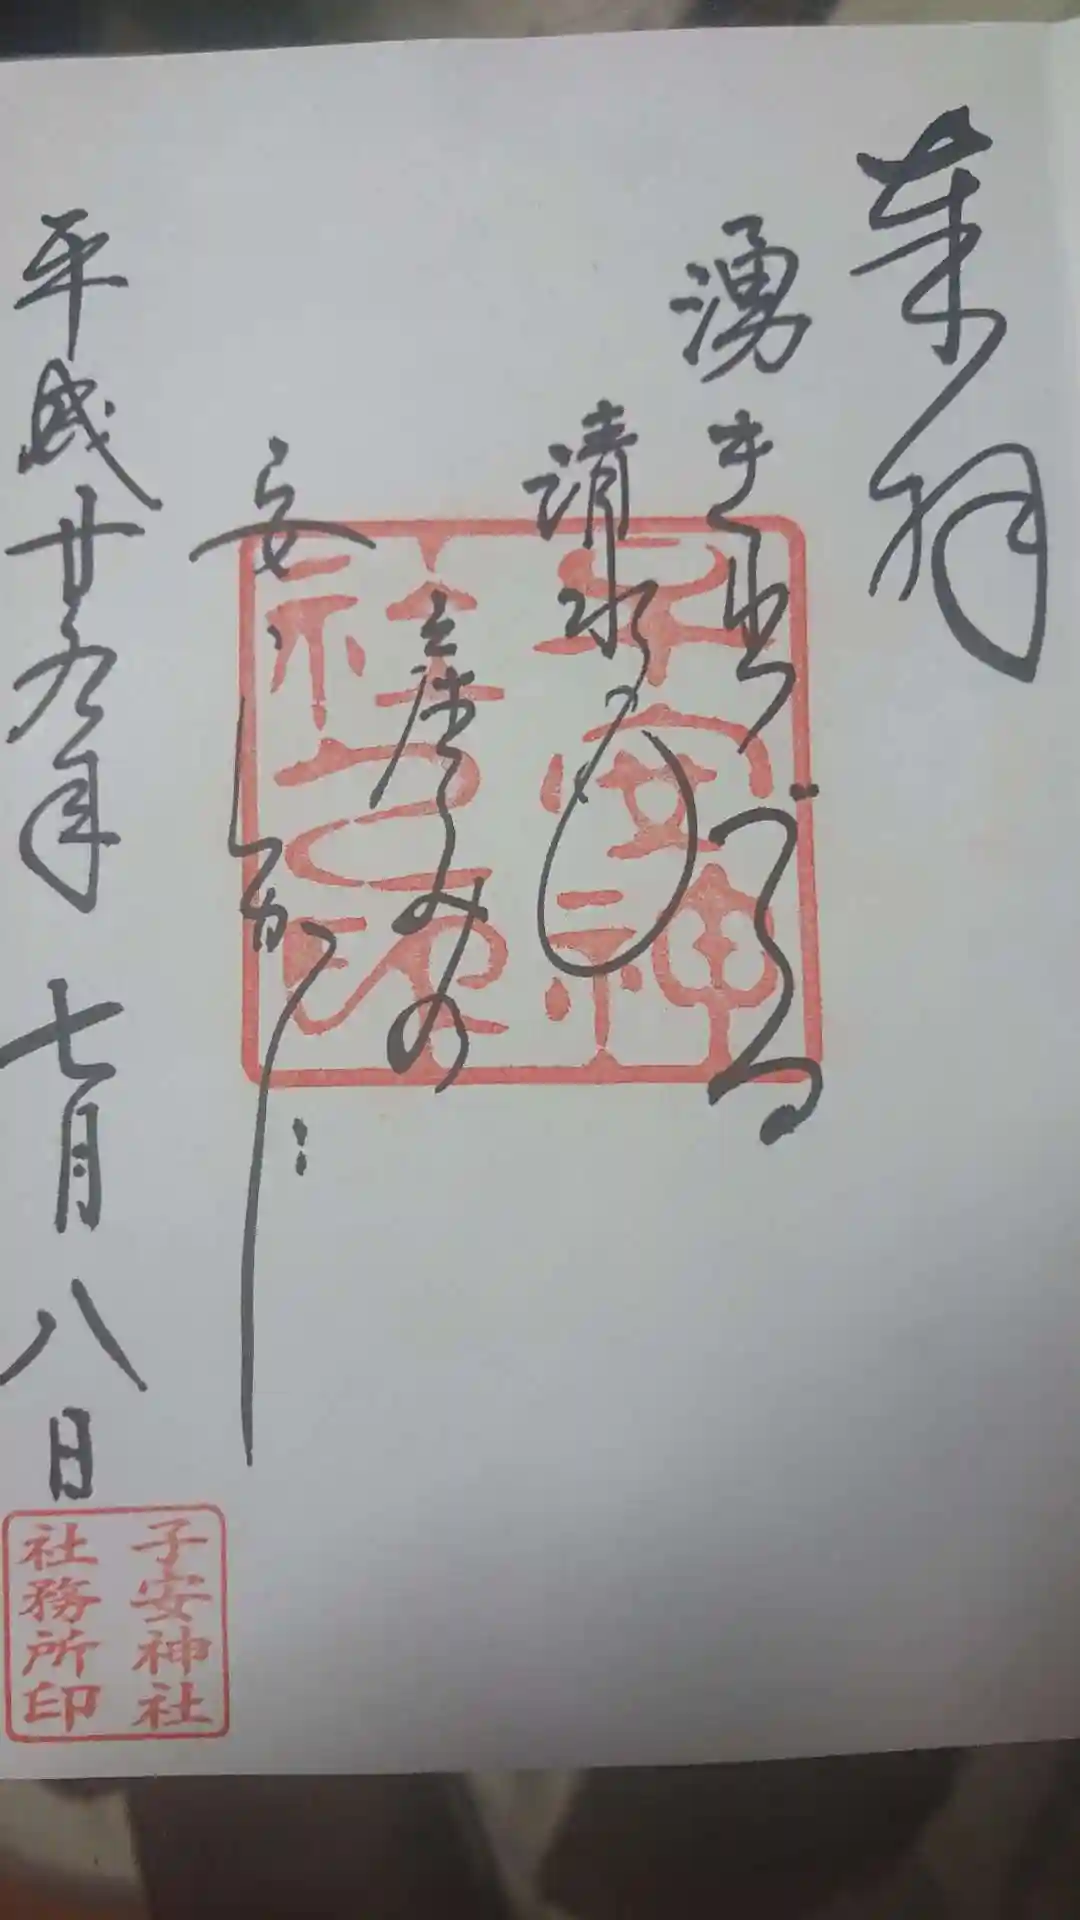 奉拝
湧き出づる
清水の
産みの
安
平成廿九年 七月八日
子安神
社之印
子安神社
社務所印